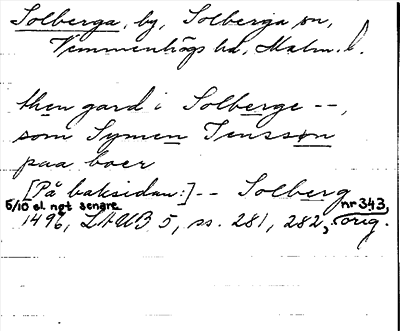 Solberga, by, Solberga sn,
Vemmenhögs hd, Malm. l.
then gard i Solberge --,
som Symen Jensson
paa boer
[På baksidan:] -- Solberg
5/10 el. ngt senare nr 343,
1496, LAUB 5, ss. 281, 282, orig.